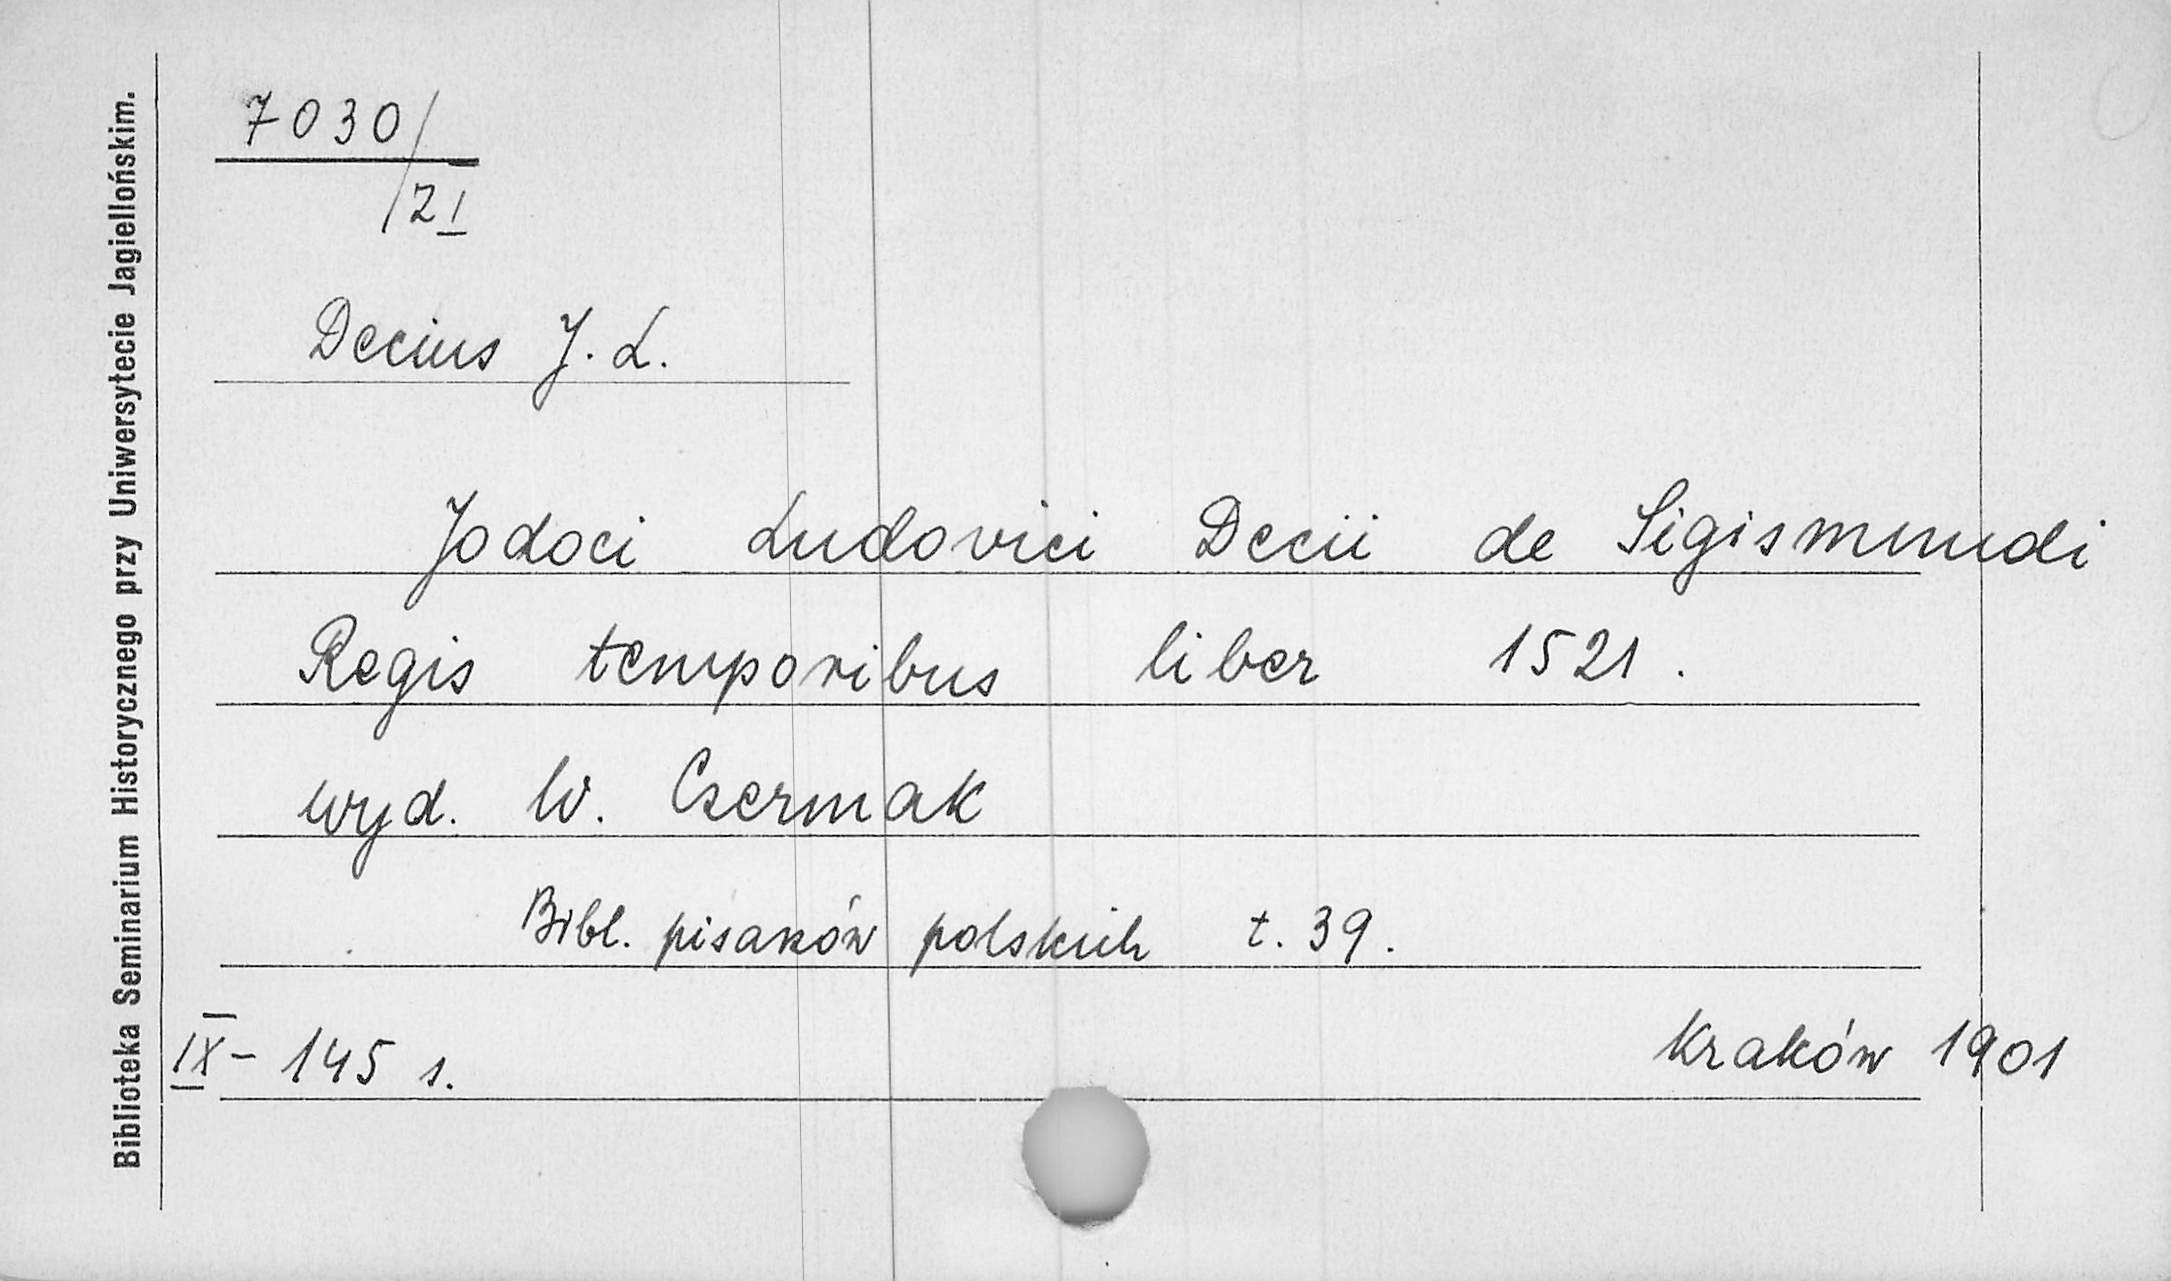 Biblioteka Seminarium Historycznego przy Uniwersytecie Jagiellońskim.
7030/
/ZI
Decius J. L.
Jodoci Ludovici Decii de Sigismundi
Regis temporibus liber 1521.
wyd. W. Czermak
Bibl. pisarzów polskich t. 39.
IX - 145 s. Kraków 1901